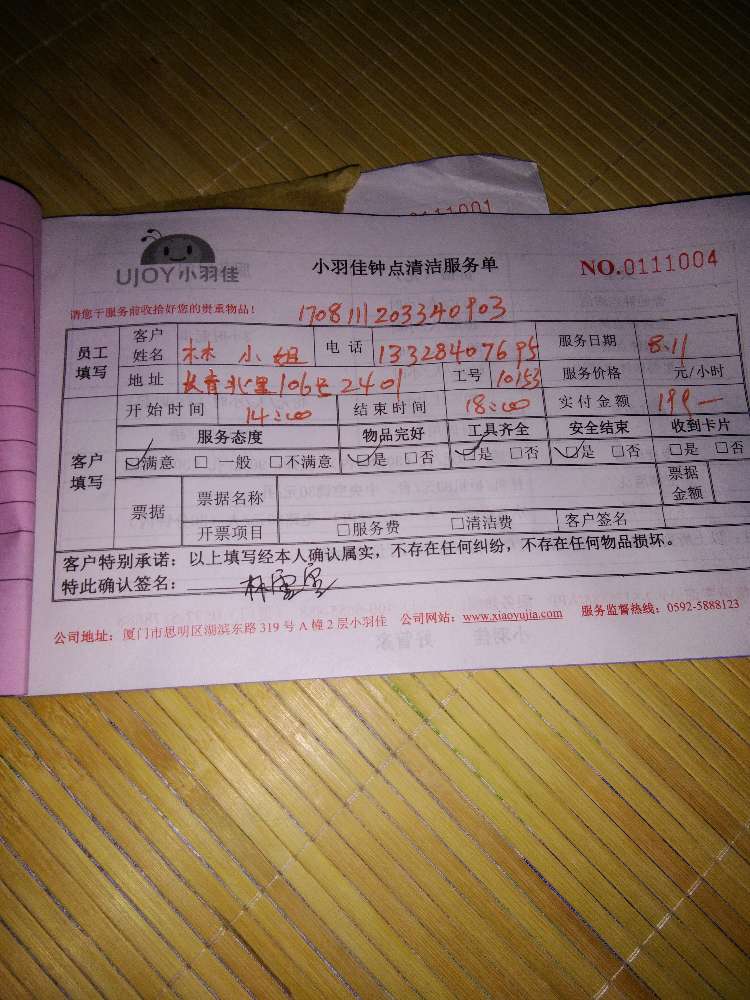 0111001
UJOY小羽佳
小羽佳钟点清洁服务单
NO.0111004
请您于服务前收拾好您的贵重物品！
170811203340903
员工填写 客户姓名 林 小姐 电 话 13328407695 服务日期 8.11
地 址 长青北里106号2401 工号 10153 服务价格 元/小时
客户填写 开始时间 14:00 结束时间 18:00 实付金额 199—
服务态度 物品完好 工具齐全 安全结束 收到卡片
☑满意 □ 一般 □不满意 ☑是 □否 ☑是 □否 ☑是 □否 □是 □否
票据 票据名称 票据金额
开票项目 □服务费 □清洁费 客户签名
客户特别承诺：以上填写经本人确认属实，不存在任何纠纷，不存在任何物品损坏。
特此确认签名：
公司地址：厦门市思明区湖滨东路 319 号 A 幢 2 层小羽佳 公司网站：www.xiaoyujia.com 服务监督热线：0592-5888123